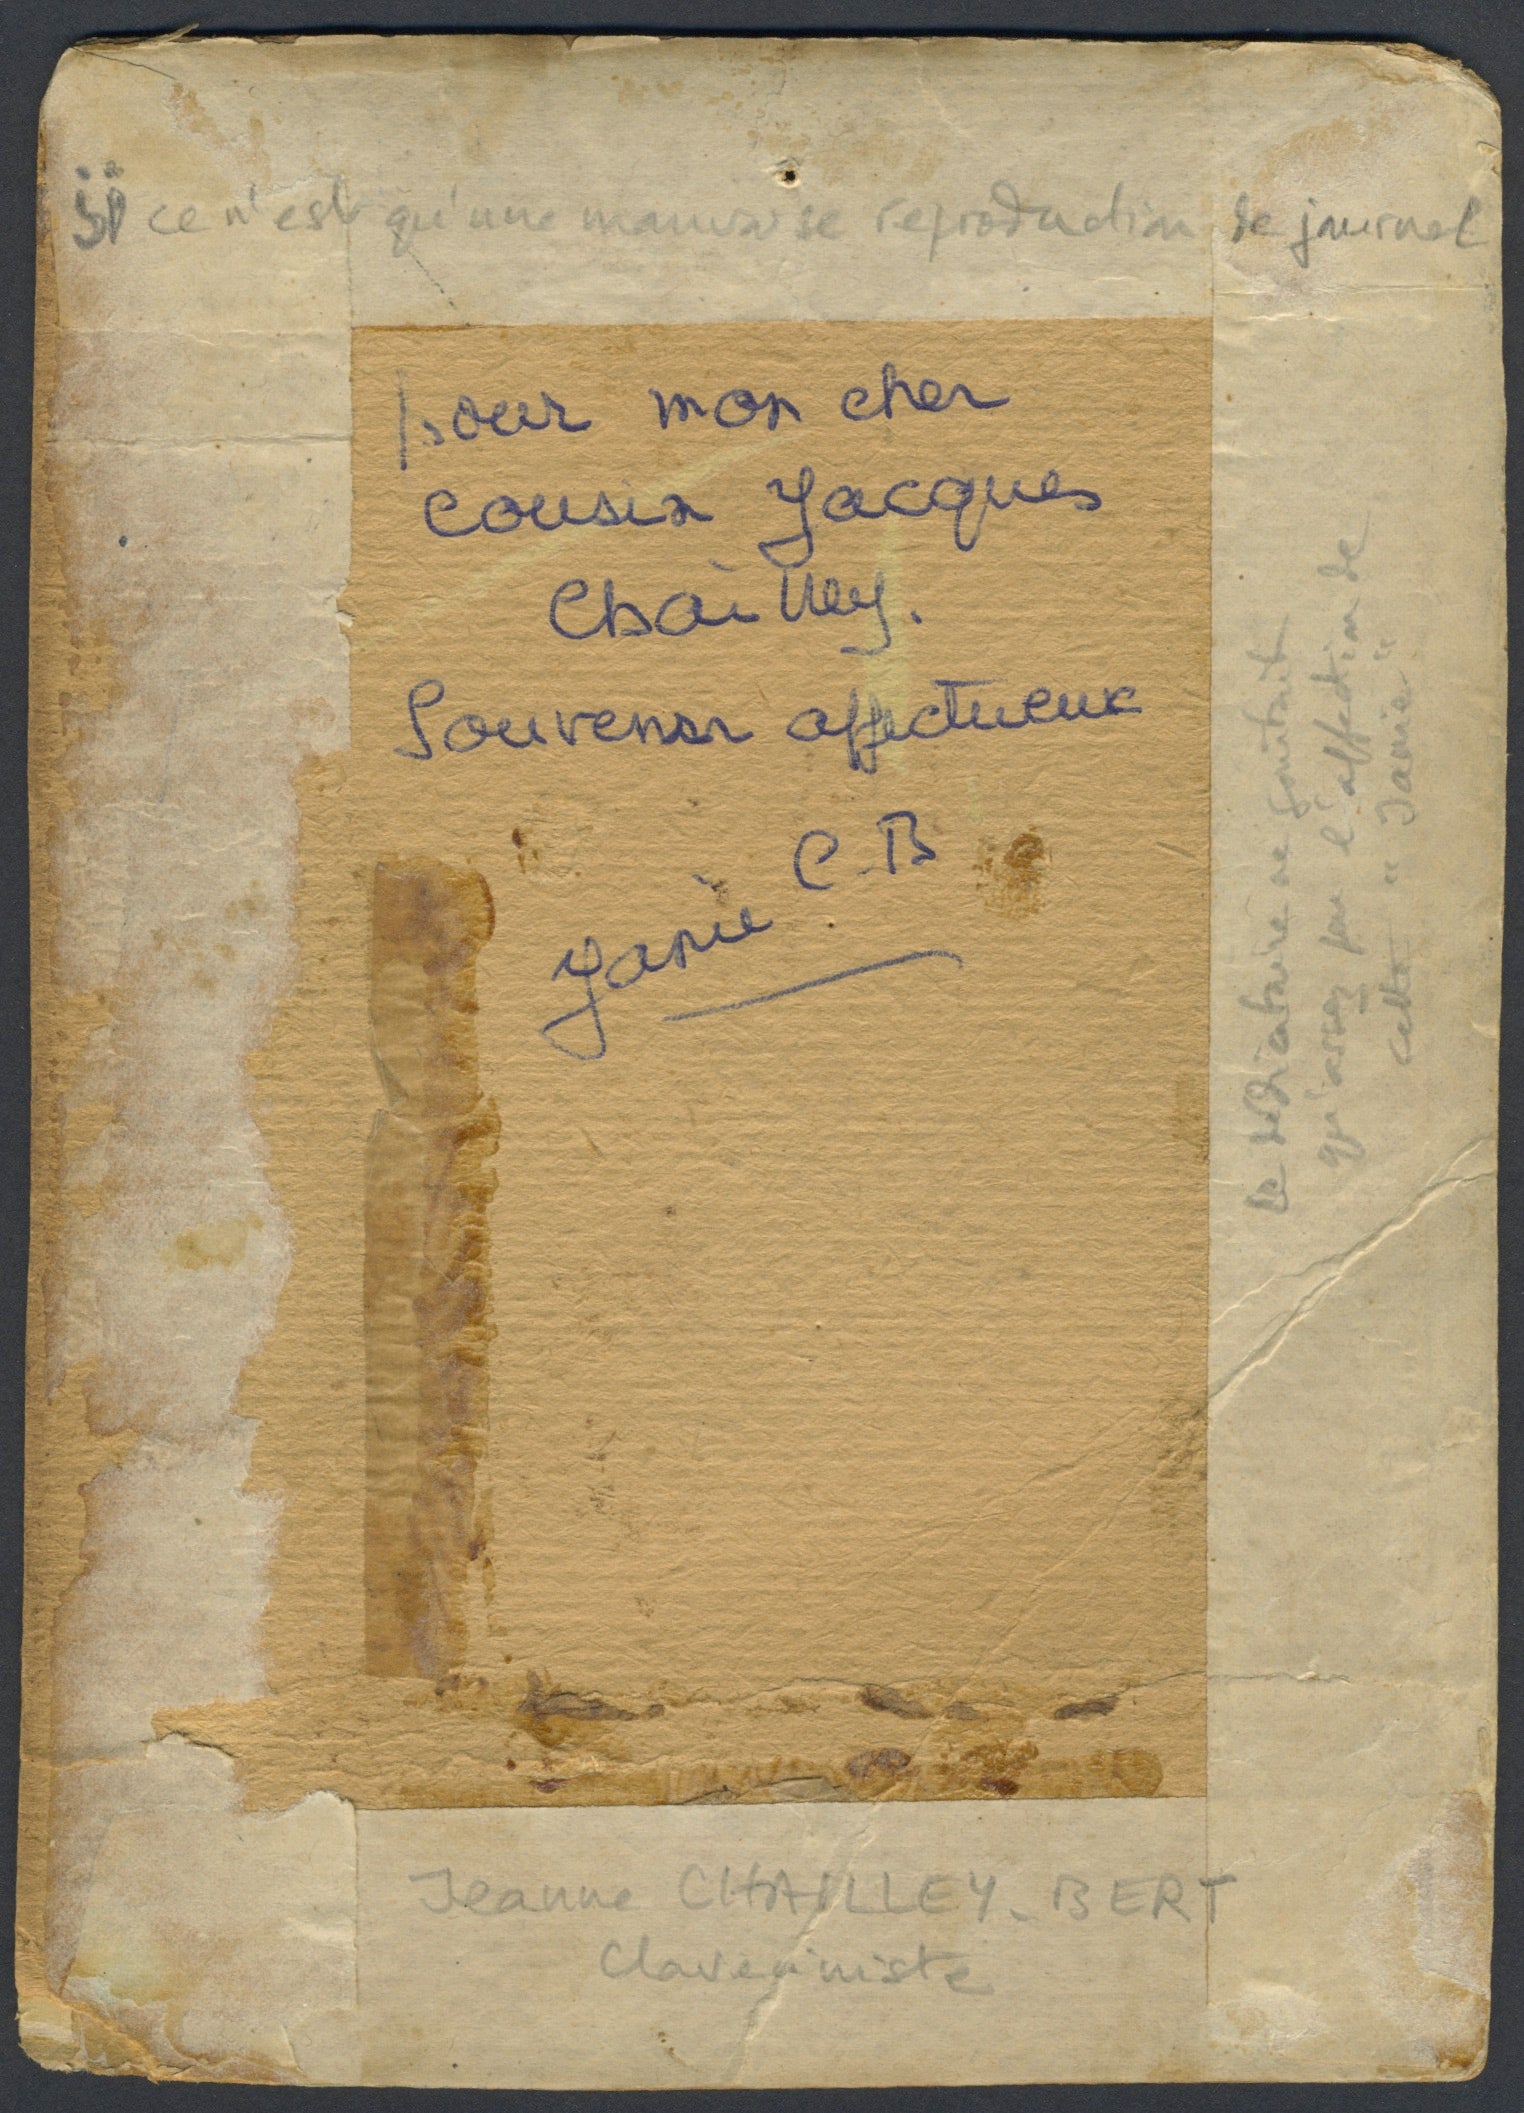 ce n'est qu'une mauvaise reproduction de journal
Pour mon cher
cousin Jacques
Chailley.
Souvenir affectueux
Janie C.B
le dédicataire ne goûtait
qu'assez peu l'affection de
cette "Janie"
Jeanne CHAILLEY-BERT
Claveciniste